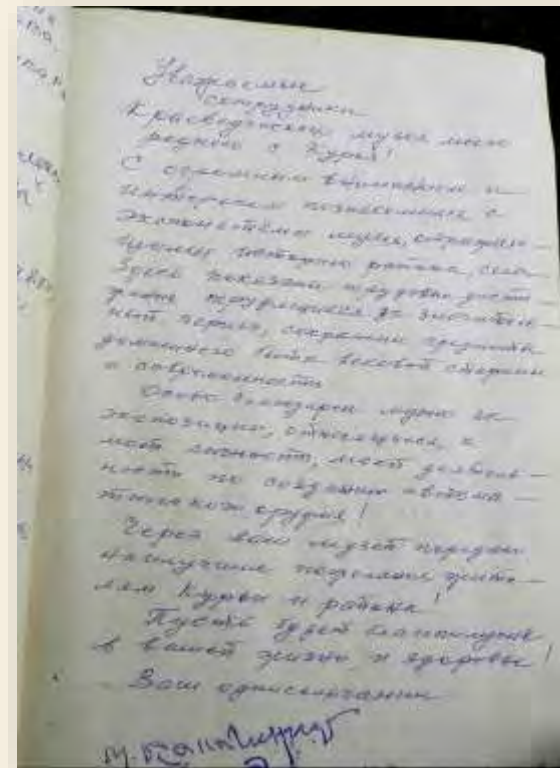 Уважаемые
сотрудники
Краеведческого музея моего
родного с. Курья!
С огромным вниманием и
интересом познакомился с
экспонатами музея, отражаю-
щими историю района, села
Здесь показаны трудовые дости-
жения трудящихся за значитель-
ный период, сохранены предметы
домашнего быта вековой старины
и современности
Особо благодарен музею за
экспозицию, относящуюся, к
моей личности, моей деятель-
ности по созданию автома-
тического оружия!
Через ваш музей передаю
наилучшие пожелания жите-
лям Курьи и района!
Пусть будет благополучие
в вашей жизни, и здоровье!
Ваш односельчанин
М. Калашников